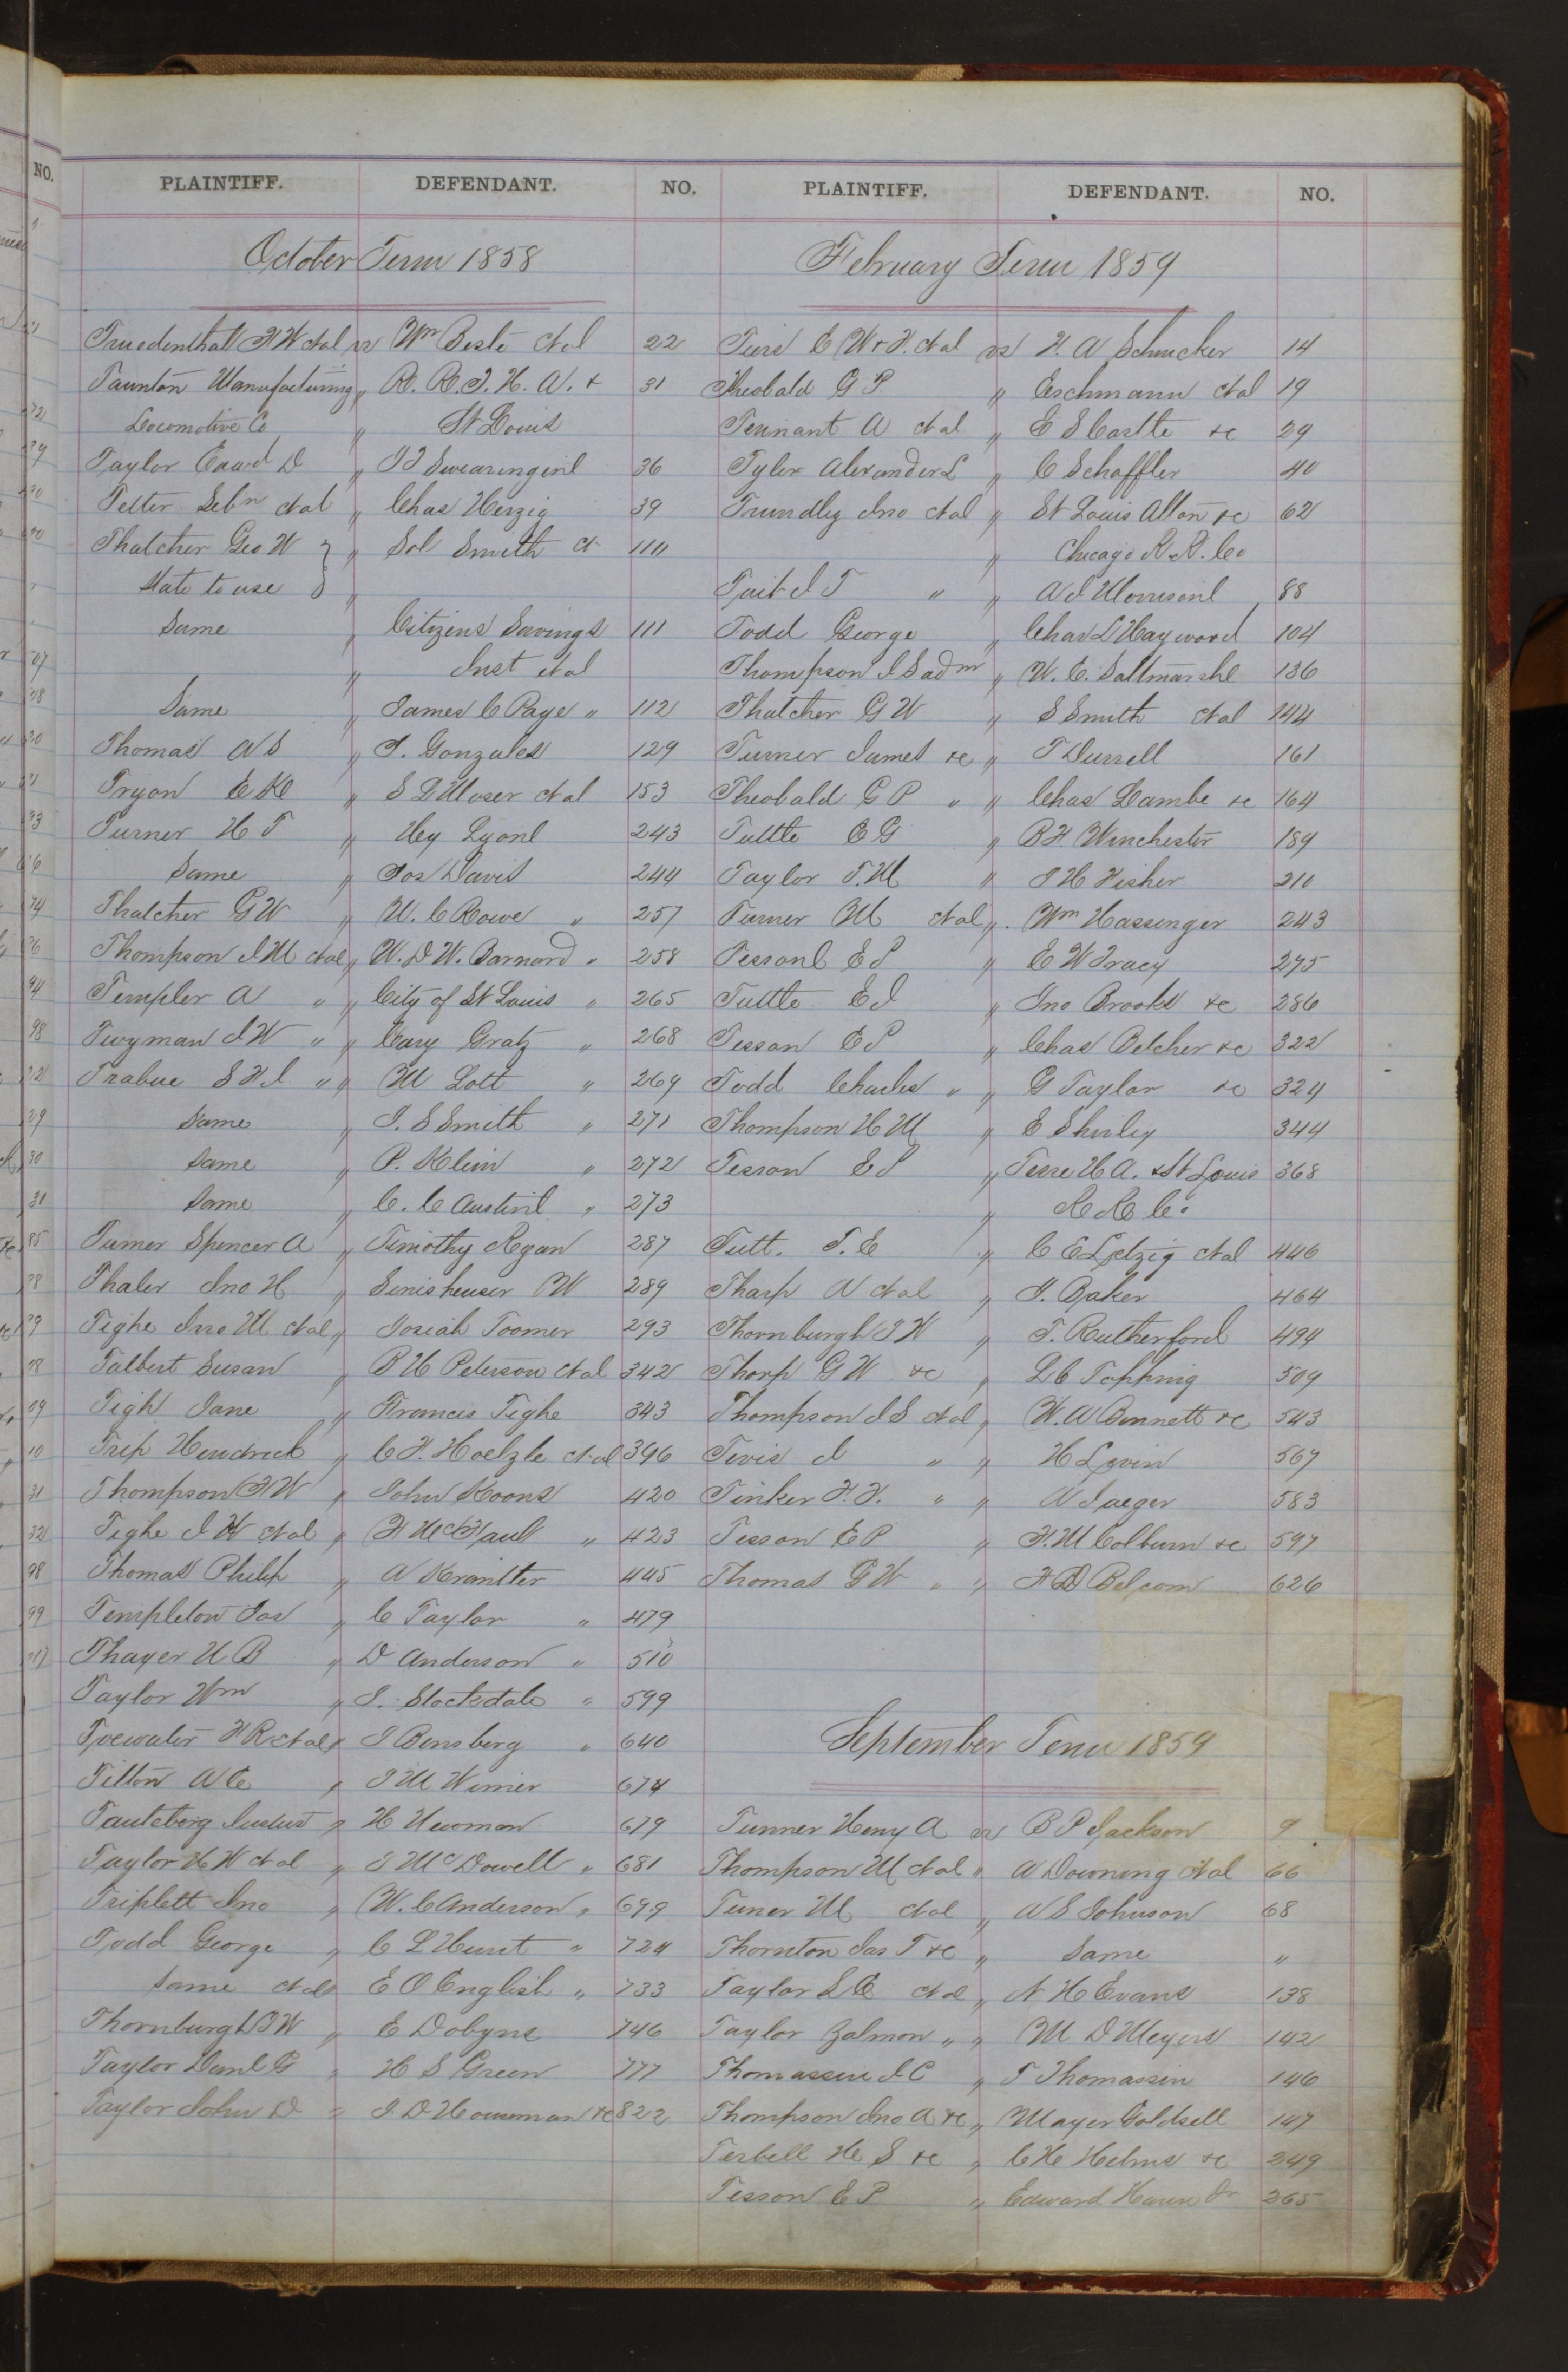 NO.
PLAINTIFF. DEFENDANT. NO.
October Term 1858
Truedenthall F W et al vs Wm Beste et al 22
Taunton Manufacturing " R. R. T. H. A. & 31
Locomotive Co " St Louis
Taylor D " 36
Tetter Sebn et al " Chas Herzig 39
Thatcher Geo W } " Sol Smith 110
State to use "
Same " Citizens Savings 111
" Inst et al
Same " James C Page " 112
Thomas N S " J. Gonzales 129
Tryon E K " S D Moser et al 153
Turner H T " Hy Lyons 243
Same " Jos Davis 244
Thatcher G W " W. C Rowe " 257
Thompson J M et al " W. D W. Barnard " 258
Templer A " " City of St Louis " 265
Twyman J W " " Cary Gratz " 268
Trabue S F J " " M Lott " 269
Same " J. S Smith " 271
Same " P. Klein " 272
Same " C. C Austin " 273
Turner Spencer A " Timothy Regan 287
Thaler Jno H " W 289
Tighe Jno M et al " Josiah Toomer 293
Talbert Susan " B H Peterson et al 342
Tigh Jane " Francis Tighe 343
Trip Hendrick " C F. Hoelzle et al 396
Thompson F W " John Koons 420
Tighe J W et al " " 423
Thomas Philip " A 445
Templeton Jos " C Taylor " 479
Thayer U B " D Anderson " 510
Taylor Wm " J. Stocksdale " 599
et al " J Bensberg " 640
Tilton A C " J M Wimer 674
" H Newman 679
Taylor H W et al " J McDowell " 681
Triplett Jno " W. C Anderson " 699
Todd George " C L Hunt " 724
Same et al " E O English " 733
Thornburgh J W " E Dobyns 746
Taylor Danl G " H S Green 777
Taylor John D " J. D Houseman &c 822
PLAINTIFF. DEFENDANT. NO.
February Term 1859
E W & F. et al vs F. A Schucker 14
Theobald G P " Eschmann et al 19
Tennant A et al " E S Castle &c 29
Tyler Alexander L " C Schaffler 40
Trundley Jno et al " St Louis Alton &c 62
" Chicago R. R. Co
Tait J T " " A J Morrison 88
Todd George " Chas L Hayward 104
Thompson J S admr " W. E. Saltmarsh 136
Thatcher G W " S Smith et al 144
Turner James &c " T Durrell 161
Theobald G P " " Chas Lambe &c 164
Tuttle E G " B F Winchester 189
Taylor T. M " J H Fisher 210
Turner M et al " Wm Hassinger 243
Tesson E P " E W Tracy 275
Tuttle E J " Jno Brooks &c 286
Tesson E P " Chas Belcher &c 322
Todd Charles " " G Taylor &c 324
Thompson H M " E Shirley 344
Tesson E P " Terre H A. & St Louis 368
" R R Co
Tutt. T. E " C E et al 446
Tharp N et al " J. Baker 464
Thornburgh J W " T. Rutherford 494
Thorp G W &c " L C Topping 509
Thompson J S et al " W. A Bennett &c 543
Tevis J " " H Levin 567
Tinker F. F. " " N Jaeger 583
Tesson E P " F. M Colburn &c 597
Thomas G W " " F D 626
September Term 1859
Turner Henry A vs B P Jackson 9
Thompson M et al " A Downing et al 66
Tuner M et al " A S Johnson 68
Thornton Jas T &c " Same "
Taylor L E et al " N H Evans 138
Taylor Zalmon " " M D Meyers 142
Thomassin J C " T Thomassin 146
Thompson Jno A &c " Mayer Goldsell 147
Terbell H S &c " C H Helms &c 249
Tesson E P " Edward Haun Jr 265